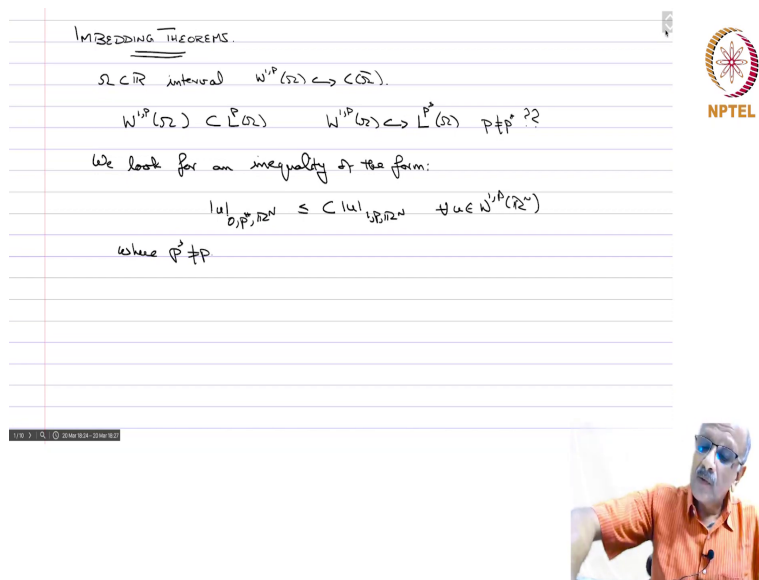 IMBEDDING THEOREMS.
Ω ⊂ ℝ interval W^{1,p}(Ω) ↪ C(Ω̄).
W^{1,p}(Ω) ⊂ L^p(Ω) W^{1,p}(Ω) ↪ L^{p*}(Ω) p ≠ p* ??
We look for an inequality of the form:
|u|_{0,p*,ℝ^N} ≤ C |u|_{1,p,ℝ^N} ∀ u ∈ W^{1,p}(ℝ^N)
where p* ≠ p.
NPTEL
1/10 20 Mar 18:24 - 20 Mar 18:27